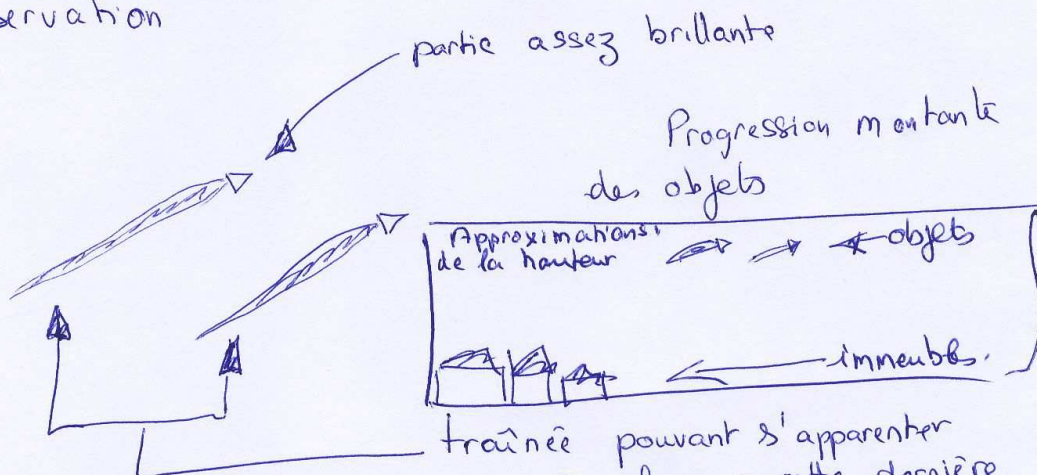 servation
partie assez brillante
Progression montante
des objets
Approximations
de la hauteur
objets
immeubles.
traînée pouvant s'apparenter
cette dernière